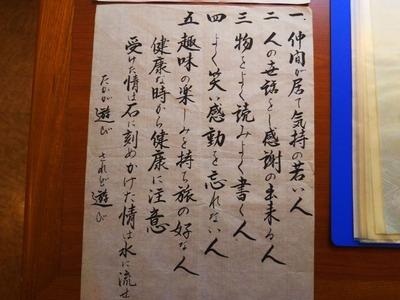 一、仲間が居て気持の若い人
二 人の世話をし感謝の出来る人
三 物をよく読みよく書く人
四 よく笑い感動を忘れない人
五 趣味の楽しみを持ち旅の好な人
健康な時から健康に注意
受けた情は石に刻めかけた情は水に流せ
たかが遊び されど遊び